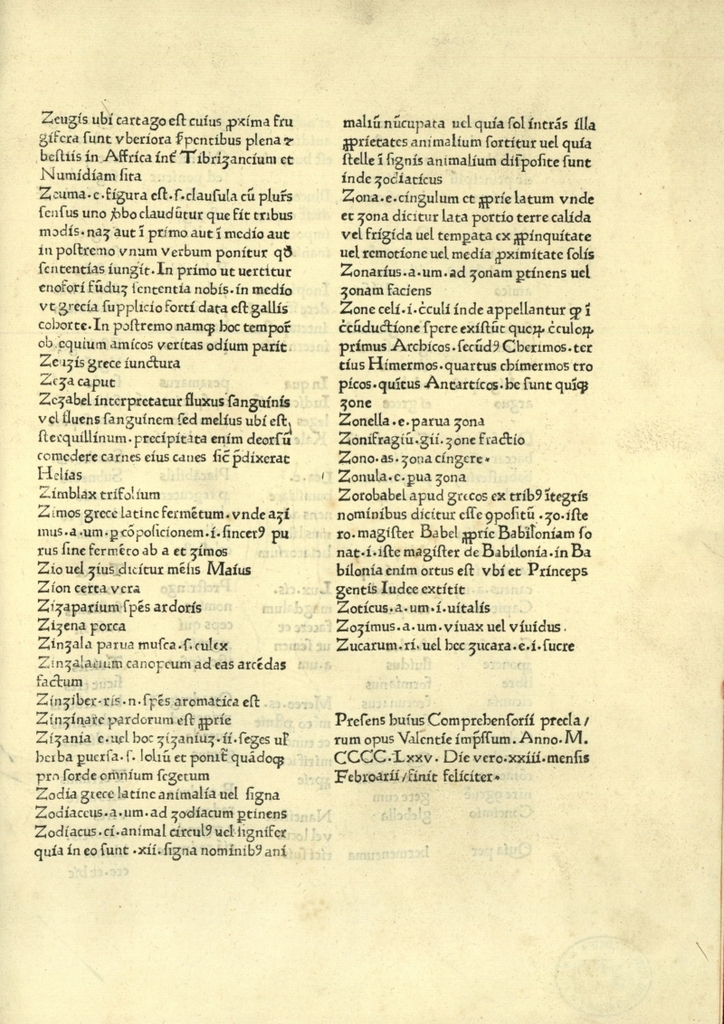 Zeugis ubi cartago est cuius ꝓxima fru
gifera sunt vberiora serpentibus plena ⁊
bestiis in Affrica int̄ Tibrizancium et
Numidiam sita
Zeuma.e.figura est.s.clausula cū plur̄s
sensus uno ꝟbo claudūtur que fit tribus
modis.naꝫ aut ī primo aut ī medio aut
in postremo vnum verbum ponitur qđ
sentencias iungit.In primo ut uertitur
enofori fūduꝫ sententia nobis.in medio
vt grecia supplicio forti data est gallis
cohorte.In postremo namqꝫ hoc tempor̄
ob equium amicos veritas odium parit
Zeuzis grece iunctura
Zeza caput
Zezabel interpretatur fluxus sanguinis
vel fluens sanguinem sed melius ubi est
sterquillinum.precipitata enim deorsū
comedere carnes eius canes sic̄ p̄dixerat
Helias
Zimblax trifolium
Zimos grece latine fermētum.vnde azi
mus.a.um.ꝑ cōposicionem.i.sincerꝰ pu
rus sine fermēto ab a et zimos
Zio uel zius dicitur mēsis Maius
Zion certa vera
Zizaparium spēs ardoris
Zizena porca
Zinzala parua musca.s.culex
Zinzalarium canopeum ad eas arcēdas
factum
Zinziber.ris.n.spēs aromatica est
Zinzinare pardorum est ꝓprie
Zizania e.uel hoc zizaniuꝫ.ii.seges ul̄
herba puersa.s.loliū et ponit̄ quādoqꝫ
pro sorde omnium segetum
Zodia grece latine animalia uel signa
Zodiaceus.a.um.ad zodiacum ꝑtinens
Zodiacus.ci.animal circulꝰ uel signifer
quia in eo sunt .xii.signa nominibꝰ ani
maliū nūcupata uel quia sol intrās illa
ꝓprietates animalium sortitur uel quia
stelle ī signis animalium disposite sunt
inde zodiaticus
Zona.e.cingulum et ꝓprie latum vnde
et zona dicitur lata portio terre calida
vel frigida uel tempata ex ꝓpinquitate
uel remotione uel media ꝓximitate solis
Zonarius.a.um.ad zonam ꝑtinens uel
zonam faciens
Zone celi.i.c̄culi inde appellantur qꝫ ī
c̄cūductione spere existūt queꝝ c̄culoꝝ
primus Archicos.secūdꝰ Cherimos.ter
tius Himermos.quartus chimermos tro
picos.quītus Antarticos.he sunt quīqꝫ
zone
Zonella.e.parua zona
Zonifragiū.gii.zone fractio
Zono.as.zona cingere.
Zonula.e.pua zona
Zorobabel apud grecos ex tribꝰ ītegris
nominibus dicitur esse ꝯpositū.zo.iste
ro.magister Babel ꝓprie Babiloniam so
nat.i.iste magister de Babilonia.in Ba
bilonia enim ortus est vbi et Princeps
gentis Iudee extitit
Zoticus.a.um.i.uitalis
Zozimus.a.um.viuax uel viuidus.
Zucarum.ri.uel hec zucara.e.i.sucre
Presens huius Comprehensorii precla/
rum opus Valentie imp̄ssum.Anno.M.
CCCC.Lxxv. Die vero.xxiii.mensis
Febroarii/finit feliciter.